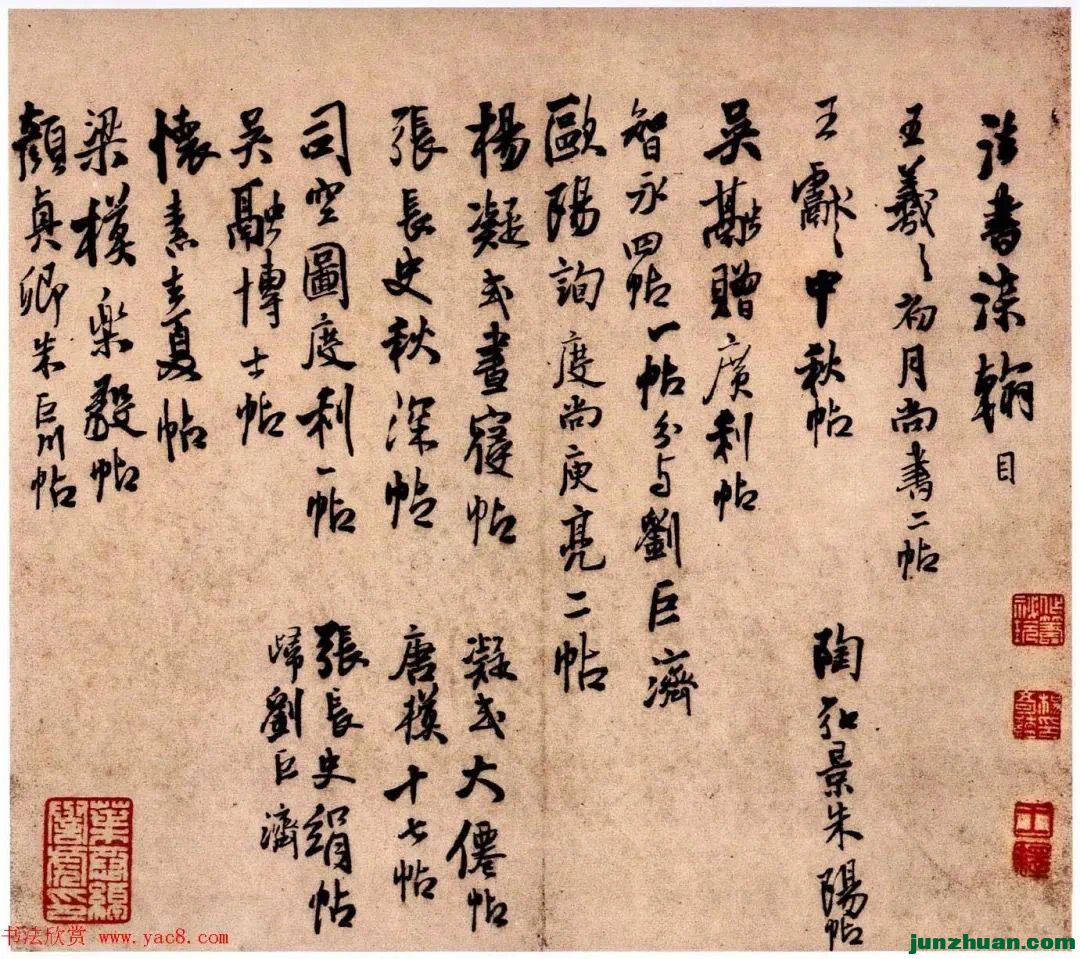 法書染翰目
王羲之初月尚書二帖
王獻之中秋帖
陶弘景朱陽帖
吴融贈廣利帖
智永四帖一帖分与劉巨濟
歐陽詢度尚庾亮二帖
楊凝式晝寢帖
凝式大僊帖
張長史秋深帖
唐模十七帖
司空圖廣利一帖
張長史絹帖
歸劉巨濟
吴融博士帖
懷素夏帖
梁模樂毅帖
顏真卿朱巨川帖
书法欣赏 www.yac8.com
junzhuan.com